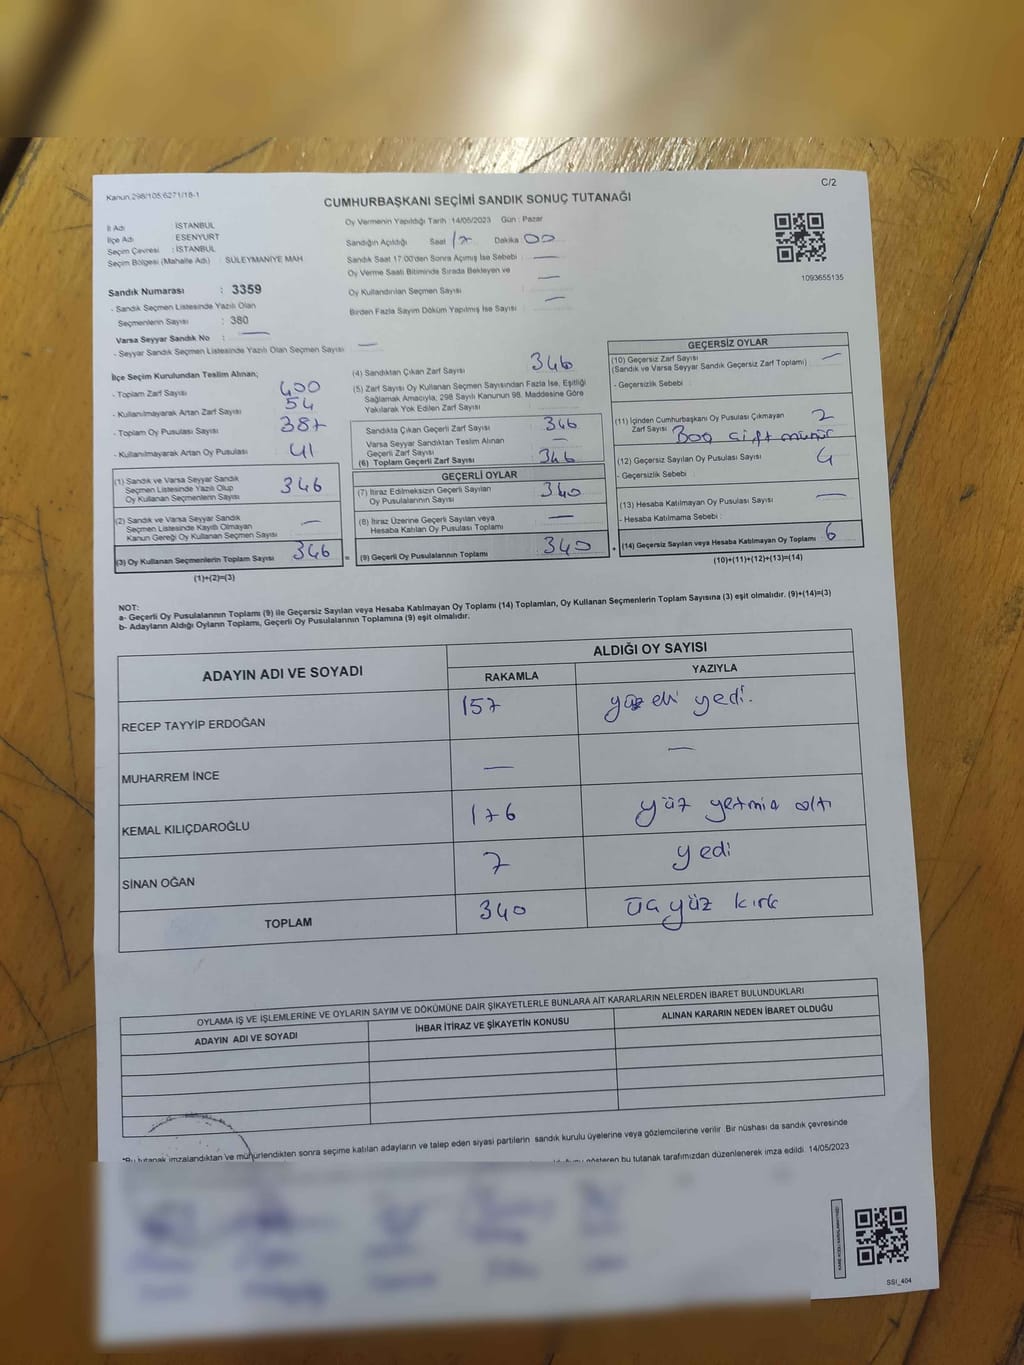 Kanun,298/105,6271/18-1
C/2
CUMHURBAŞKANI SEÇİMİ SANDIK SONUÇ TUTANAĞI
İl Adı : İSTANBUL
İlçe Adı : ESENYURT
Seçim Çevresi : İSTANBUL
Seçim Bölgesi (Mahalle Adı) : SÜLEYMANİYE MAH
Oy Vermenin Yapıldığı Tarih :14/05/2023 Gün : Pazar
Sandığın Açıldığı Saat 17 Dakika 00
Sandık Saat 17:00'den Sonra Açımış İse Sebebi : —
Oy Verme Saati Bitiminde Sırada Bekleyen ve
Oy Kullandırılan Seçmen Sayısı : —
Birden Fazla Sayım Döküm Yapılmış İse Sayısı : —
1093655135
Sandık Numarası : 3359
- Sandık Seçmen Listesinde Yazılı Olan
Seçmenlerin Sayısı : 380
Varsa Seyyar Sandık No : —
- Seyyar Sandık Seçmen Listesinde Yazılı Olan Seçmen Sayısı : —
İlçe Seçim Kurulundan Teslim Alınan;
- Toplam Zarf Sayısı : 400
- Kullanılmayarak Artan Zarf Sayısı : 54
- Toplam Oy Pusulası Sayısı : 387
- Kullanılmayarak Artan Oy Pusulası : 41
(1) Sandık ve Varsa Seyyar Sandık
Seçmen Listesinde Yazılı Olup
Oy Kullanan Seçmenlerin Sayısı 346
(2) Sandık ve Varsa Seyyar Sandık
Seçmen Listesinde Kayıtlı Olmayan
Kanun Gereği Oy Kullanan Seçmen Sayısı —
(3) Oy Kullanan Seçmenlerin Toplam Sayısı 346
(1)+(2)=(3)
(4) Sandıktan Çıkan Zarf Sayısı : 346
(5) Zarf Sayısı Oy Kullanan Seçmen Sayısından Fazla İse, Eşitliği
Sağlamak Amacıyla, 298 Sayılı Kanunun 98. Maddesine Göre
Yakılarak Yok Edilen Zarf Sayısı :
Sandıkta Çıkan Geçerli Zarf Sayısı : 346
Varsa Seyyar Sandıktan Teslim Alınan
Geçerli Zarf Sayısı : —
(6) Toplam Geçerli Zarf Sayısı : 346
GEÇERLİ OYLAR
(7) İtiraz Edilmeksizin Geçerli Sayılan
Oy Pusulalarının Sayısı : 340
(8) İtiraz Üzerine Geçerli Sayılan veya
Hesaba Katılan Oy Pusulası Toplamı : —
= (9) Geçerli Oy Pusulalarının Toplamı 340
GEÇERSİZ OYLAR
(10) Geçersiz Zarf Sayısı : —
(Sandık ve Varsa Seyyar Sandık Geçersiz Zarf Toplamı)
- Geçersizlik Sebebi :
(11) İçinden Cumhurbaşkanı Oy Pusulası Çıkmayan
Zarf Sayısı : 2
Boş çift mühür
(12) Geçersiz Sayılan Oy Pusulası Sayısı : 4
- Geçersizlik Sebebi :
(13) Hesaba Katılmayan Oy Pusulası Sayısı : —
- Hesaba Katılmama Sebebi :
+ (14) Geçersiz Sayılan veya Hesaba Katılmayan Oy Toplamı 6
(10)+(11)+(12)+(13)=(14)
NOT:
a- Geçerli Oy Pusulalarının Toplamı (9) ile Geçersiz Sayılan veya Hesaba Katılmayan Oy Toplamı (14) Toplamları, Oy Kullanan Seçmenlerin Toplam Sayısına (3) eşit olmalıdır. (9)+(14)=(3)
b- Adayların Aldığı Oyların Toplamı, Geçerli Oy Pusulalarının Toplamına (9) eşit olmalıdır.
ADAYIN ADI VE SOYADI
ALDIĞI OY SAYISI
RAKAMLA YAZIYLA
RECEP TAYYİP ERDOĞAN 157 yüz elli yedi.
MUHARREM İNCE — —
KEMAL KILIÇDAROĞLU 176 yüz yetmiş altı
SİNAN OĞAN 7 yedi
TOPLAM 340 üçyüz kırk
OYLAMA İŞ VE İŞLEMLERİNE VE OYLARIN SAYIM VE DÖKÜMÜNE DAİR ŞİKAYETLERLE BUNLARA AİT KARARLARIN NELERDEN İBARET BULUNDUKLARI
ADAYIN ADI VE SOYADI İHBAR İTİRAZ VE ŞİKAYETİN KONUSU ALINAN KARARIN NEDEN İBARET OLDUĞU
"Bu tutanak imzalandıktan ve mühürlendikten sonra seçime katılan adayların ve talep eden siyasi partilerin sandık kurulu üyelerine veya gözlemcilerine verilir. Bir nüshası da sandık çevresinde
gösteren bu tutanak tarafımızdan düzenlenerek imza edildi. 14/05/2023
SSI_404